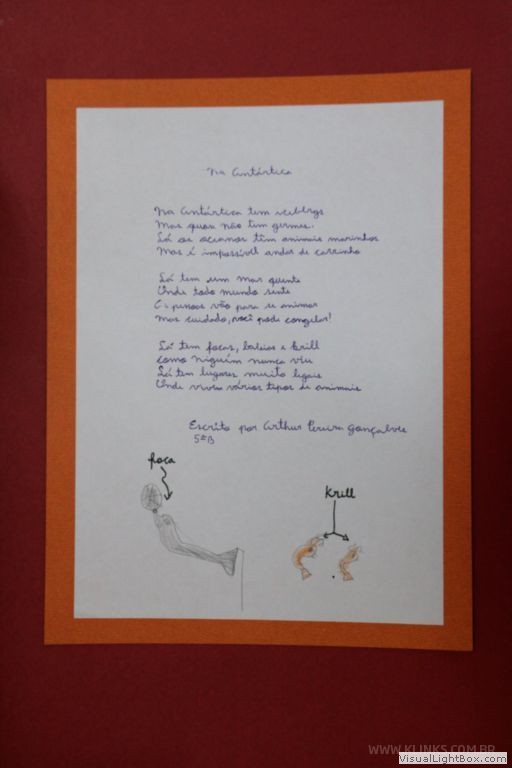 Na Antártica
Na Antártica tem iceberg
Mas quase não tem germes.
Lá os oceanos têm animais marinhos
Mas é impossível andar de carrinho
Lá tem um mar quente
Onde todo mundo sente
Os pessoas vão para se animar
Mas cuidado, você pode congelar!
Lá tem focas, baleias e krill
Como niguém nunca viu
Lá tem lugares muito legais
Onde vivem vários tipos de animais
Escrito por Arthur Pereira Gonçalves
5ºB
foca
Krill
WWW.KLINKS.COM.BR
VisualLightBox.com